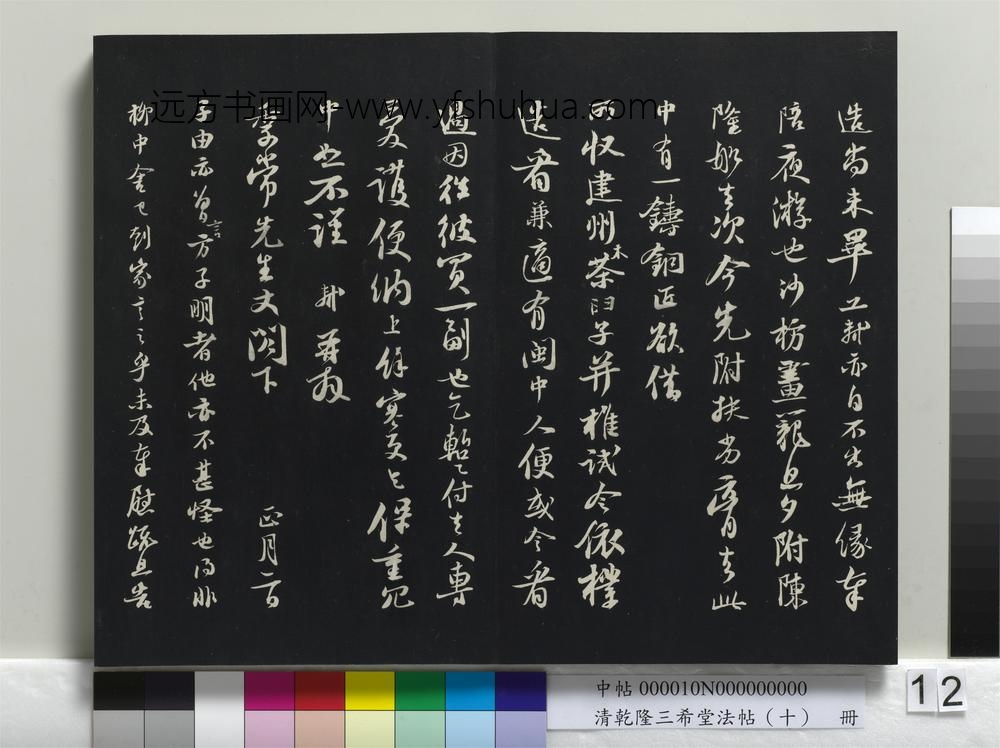 造尚未畢工軾亦自不出無緣奉
陪夜游也沙枋畫籠旦夕附陳
隆船去次今先附扶劣膏去此
中有一鑄銅匠欲借
所收建州木茶臼子并椎試令依樣
造看兼適有閩中人便或令看
過因往彼買一副也乞暫付去人專
愛護便納上餘寒更乞保重冗
中恕不謹軾再拜
季常先生丈閣下 正月二日
子由亦曾言方子明者他亦不甚怪也得非
柳中舍已到家言之乎未及奉慰疏且告
远方书画网-www.yfshuhua.com
中帖 000010N000000000
清乾隆三希堂法帖（十） 冊
12